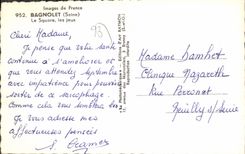 Images de France
952. BAGNOLET (Seine)
Le Square, les jeux
93
Chère Madame,
Je pense que votre santé
continue à s'améliorer et
que vous attendez Septembre
avec impatience pour pouvoir
sortir de ce sarcophage.
Comme cela vous semblera bon
Je vous adresse mes
affectueuses pensées
Madame
Clinique Nazareth
Rue Perronet
Neuilly s/ Seine